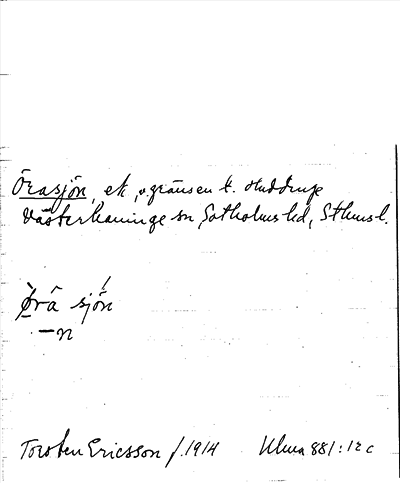 Örasjön, ek, v. gränsen t. Huddinge
Västerhaninge sn, Sotholms hd, Sthms l.
Örâ sjön
-n
Torsten Ericsson f. 1914 Ulma 881:12c